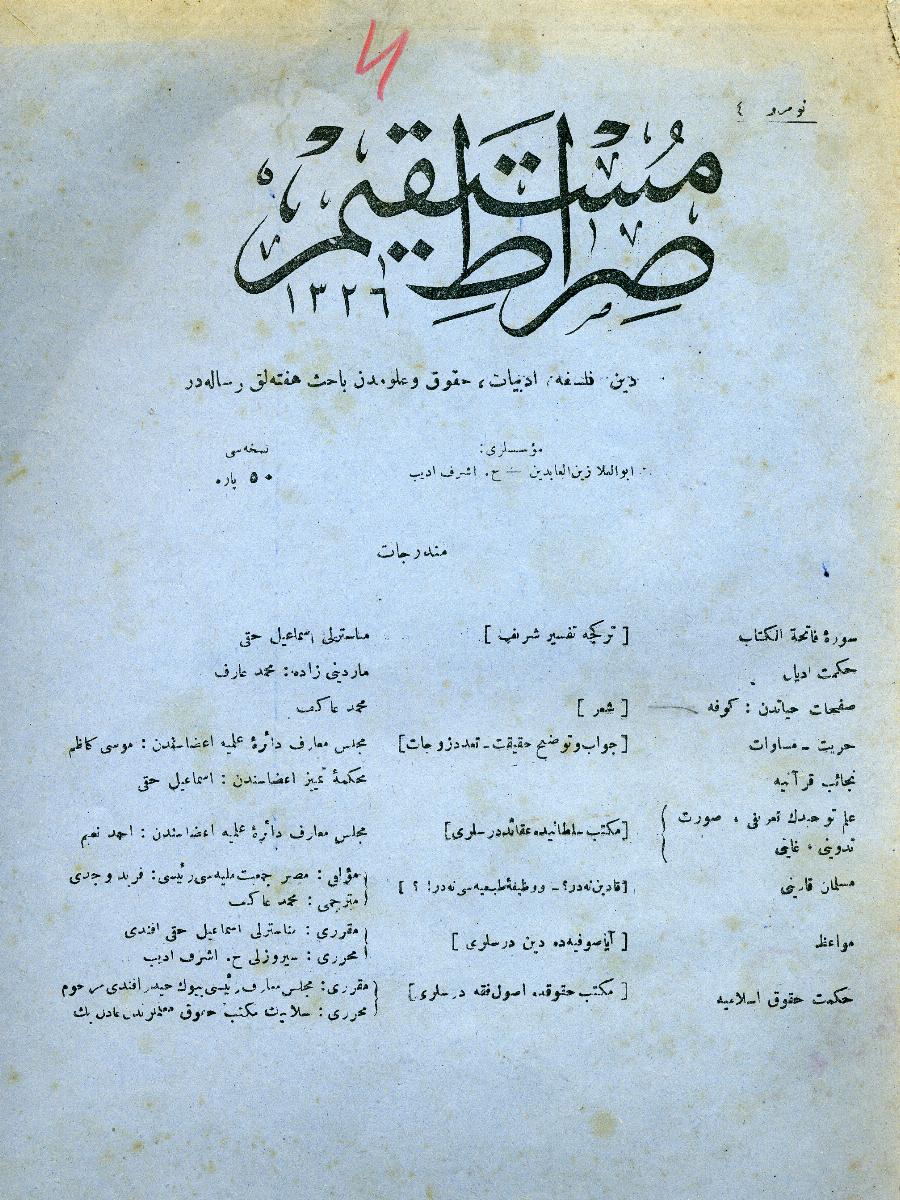 نومرو ٤
صراط مستقيم
١٣٢٦
دين، فلسفه، ادبيات، حقوق وعلومدن باحث هفته‌لق رساله‌در
مؤسسلرى:
ابوالعلا زين‌العابدين — ح. اشرف اديب
نسخه‌سى
٥٠ پاره
مندرجات
سورۀ فاتحة الكتاب [ تركجه تفسير شريف ] مناسترلى اسماعيل حقى
حكمت اديان ماردينى زاده: محمد عارف
صفحات حياتدن : كوفه [ شعر ] محمد عاكف
حريت ـ مساوات [ جواب وتوضيح حقيقت ـ تعدد زوجات ] مجلس معارف دائرۀ علميه اعضاسندن : موسى كاظم
نجائب قرآنيه محكمۀ تمييز اعضاسندن : اسماعيل حقى
علم توحيدك تعريفى ، صورت تدوينى ، غايتى [مكتب سلطانيده عقائد درسلرى] مجلس معارف دائرۀ علميه اعضاسندن : احمد نعيم
مسلمان قادينى [قادين نه‌در؟ ـ ووظيفۀ طبيعيه‌سى نه‌در! ؟ ] مؤلفى : مصر جمعت مليه‌سى رئيسى: فريد وجدى
مترجمى : محمد عاكف
مواعظ [ آياصوفيه‌ده دين درسلرى ] مقررى : مناسترلى اسماعيل حقى افندى
محررى : سيروزلى ح. اشرف اديب
حكمت حقوق اسلاميه [ مكتب حقوقده اصول فقه درسلرى ] مقررى: مجلس معارف رئيسى بيوك حيدر افندى مرحوم
محررى : سلانيك مكتب حقوق معلملرندن عادل بك